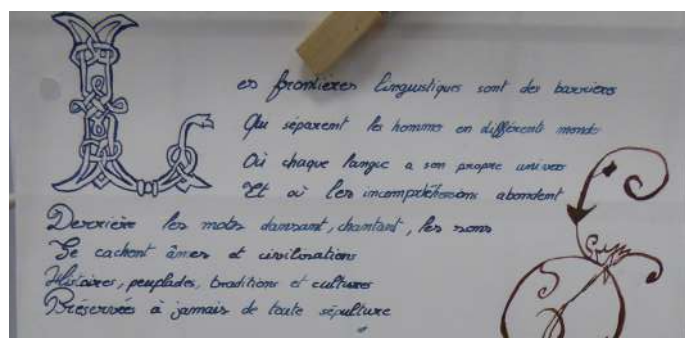 Les frontières linguistiques sont des barrières
Qui séparent les hommes en différents monde
Où chaque langue a son propre univers
Et où les incompréhensions abondent
Derrière les mots dansant, chantant, les sons
Se cachent âmes et civilisations
Histoires, peuplades, traditions et cultures
Préservées à jamais de toute sépulture